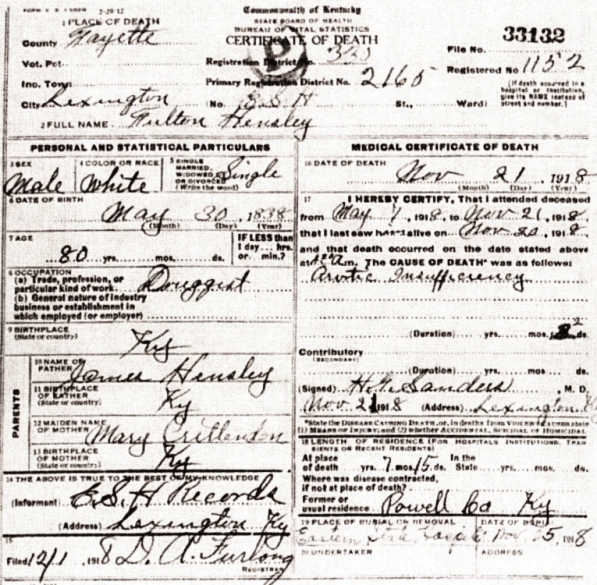 FORM V. S. 2-29-12
Commonwealth of Kentucky
STATE BOARD OF HEALTH
BUREAU OF VITAL STATISTICS
CERTIFICATE OF DEATH
1 PLACE OF DEATH
County Fayette
Vot. Pct.
Inc. Town
City Lexington
Registration District No. 320
Primary Registration District No. 2165
(No. E.S.H St., Ward)
33132
File No.
Registered No. 1152
(If death occurred in a hospital or institution, give its NAME instead of street and number.)
2 FULL NAME Fulton Hensley
PERSONAL AND STATISTICAL PARTICULARS
3 SEX Male
4 COLOR OR RACE White
5 SINGLE MARRIED, WIDOWED OR DIVORCED (Write the word) Single
6 DATE OF BIRTH May 30, 1838
(Month) (Day) (Year)
7 AGE 80 yrs. mos. ds.
IF LESS than 1 day...hrs. or min.?
8 OCCUPATION
(a) Trade, profession, or particular kind of work. Druggist
(b) General nature of industry business or establishment in which employed (or employer)
9 BIRTHPLACE (State or country) Ky
PARENTS
10 NAME OF FATHER James Hensley
11 BIRTHPLACE OF FATHER (State or country) Ky
12 MAIDEN NAME OF MOTHER Mary Crittendon
13 BIRTHPLACE OF MOTHER (State or country) Ky
14 THE ABOVE IS TRUE TO THE BEST OF MY KNOWLEDGE
(Informant) E.S.H Records
(Address) Lexington Ky
15
Filed 12/1 1918 D. A. Furlong
REGISTRAR
MEDICAL CERTIFICATE OF DEATH
16 DATE OF DEATH
Nov 21, 1918
(Month) (Day) (Year)
17 I HEREBY CERTIFY, That I attended deceased
from May 7, 1918, to Nov 21, 1918,
that I last saw him alive on Nov 20, 1918,
and that death occurred on the date stated above
at m. The CAUSE OF DEATH* was as follows:
Arotic Insufficiency
(Duration) yrs. mos. ds.
Contributory
(SECONDARY)
(Duration) yrs. mos. ds.
(Signed) Sanders, M. D.
Nov 21 1918 (Address) Lexington, Ky
*State the DISEASE CAUSING DEATH, or, in deaths from VIOLENT CAUSES state (1) MEANS OF INJURY; and (2) whether ACCIDENTAL, SUICIDAL OR HOMICIDAL.
18 LENGTH OF RESIDENCE (FOR HOSPITALS, INSTITUTIONS, TRANSIENTS OR RECENT RESIDENTS)
At place of death yrs. 7 mos. 15 ds. In the State yrs. mos. ds.
Where was disease contracted, if not at place of death?
Former or usual residence Powell Co Ky
19 PLACE OF BURIAL OR REMOVAL
DATE OF BURIAL
Eastern State Hospital Nov. 25, 1918
20 UNDERTAKER
ADDRESS